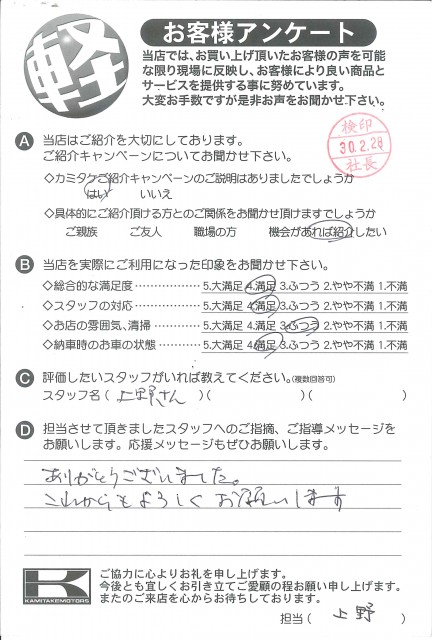 軽
お客様アンケート
当店では、お買い上げ頂いたお客様の声を可能
な限り現場に反映し、お客様により良い商品と
サービスを提供する事に努めています。
大変お手数ですが是非お声をお聞かせ下さい。
検印
30.2.28
社長
A 当店はご紹介を大切にしております。
ご紹介キャンペーンについてお聞かせ下さい。
◇カミタケご紹介キャンペーンのご説明はありましたでしょうか
はい いいえ
◇具体的にご紹介頂ける方とのご関係をお聞かせ頂けますでしょうか
ご親族 ご友人 職場の方 機会があれば紹介したい
B 当店を実際にご利用になった印象をお聞かせ下さい。
◇総合的な満足度 ……………… 5.大満足 4.満足 3.ふつう 2.やや不満 1.不満
◇スタッフの対応 ……………… 5.大満足 4.満足 3.ふつう 2.やや不満 1.不満
◇お店の雰囲気、清掃 ………… 5.大満足 4.満足 3.ふつう 2.やや不満 1.不満
◇納車時のお車の状態 ………… 5.大満足 4.満足 3.ふつう 2.やや不満 1.不満
C 評価したいスタッフがいれば教えてください。(複数回答可)
スタッフ名( 上野さん )( )( )
D 担当させて頂きましたスタッフへのご指摘、ご指導メッセージを
お願いします。応援メッセージもぜひお願いします。
ありがとうございました。
これからもよろしくお願いします
K
KAMITAKEMOTORS
ご協力に心よりお礼を申し上げます。
今後とも宜しくお引き立てご愛顧の程お願い申し上げます。
またのご来店を心からお待ちしております。
担当( 上野 )